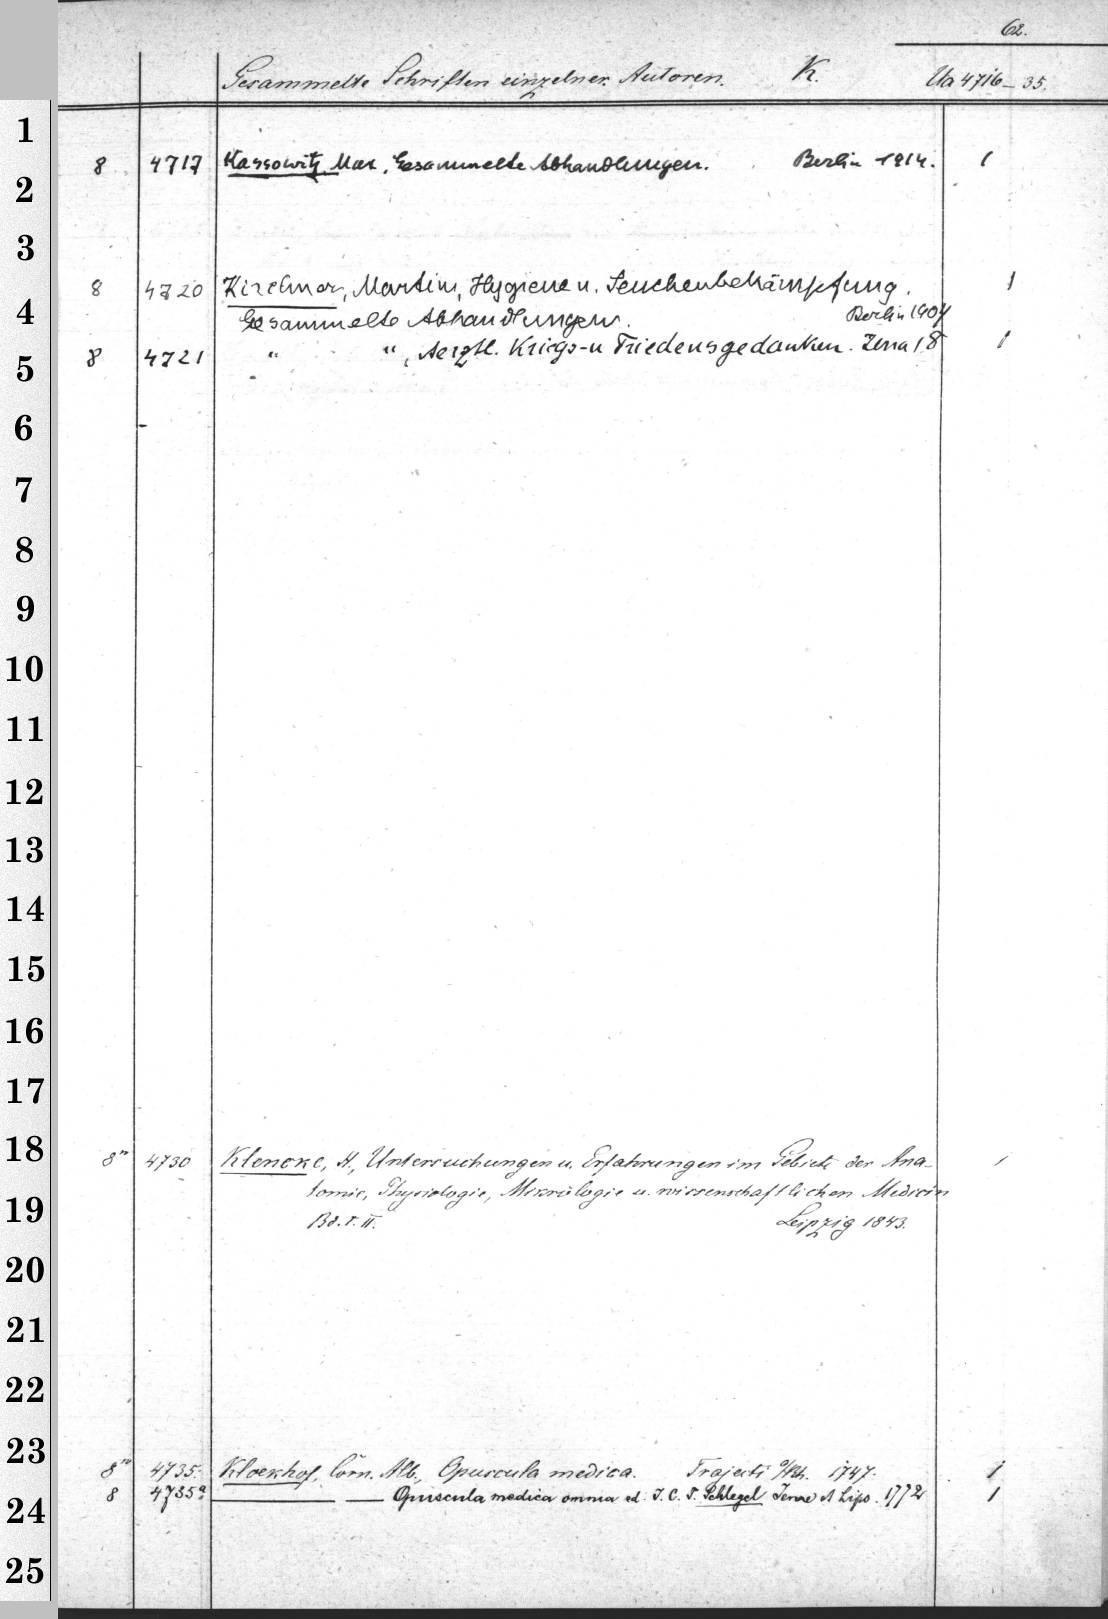 62.
Gesammelte Schriften einzelner Autoren. K. Ua 4716-35.
1
8 4717 Kassowitz, Max, Gesammelte Abhandlungen. Berlin 1914. 1
2
3
8 4720 Kirchner, Martin, Hygiene u. Seuchenbekämpfung. 1
4 Gesammelte Abhandlungen. Berlin 1904
8 4721 " " , Aerztl. Kriegs- u Friedensgedanken. Jena 18 1
5
6
7
8
9
10
11
12
13
14
15
16
17
18 8° 4730 Klencke, H., Untersuchungen u. Erfahrungen im Gebiete der Ana-
tomie, Physiologie, Mikrologie u. wissenschaftlichen Medicin
19 Bd. I. II. Leipzig 1843.
20
21
22
23
8° 4735. Kloekhof, Corn. Alb., Opuscula medica. Trajecti 1747. 1
8 4735a Opuscula medica omnia ed. J. C. T. Schlegel Jenae et Lips. 1772 1
24
25